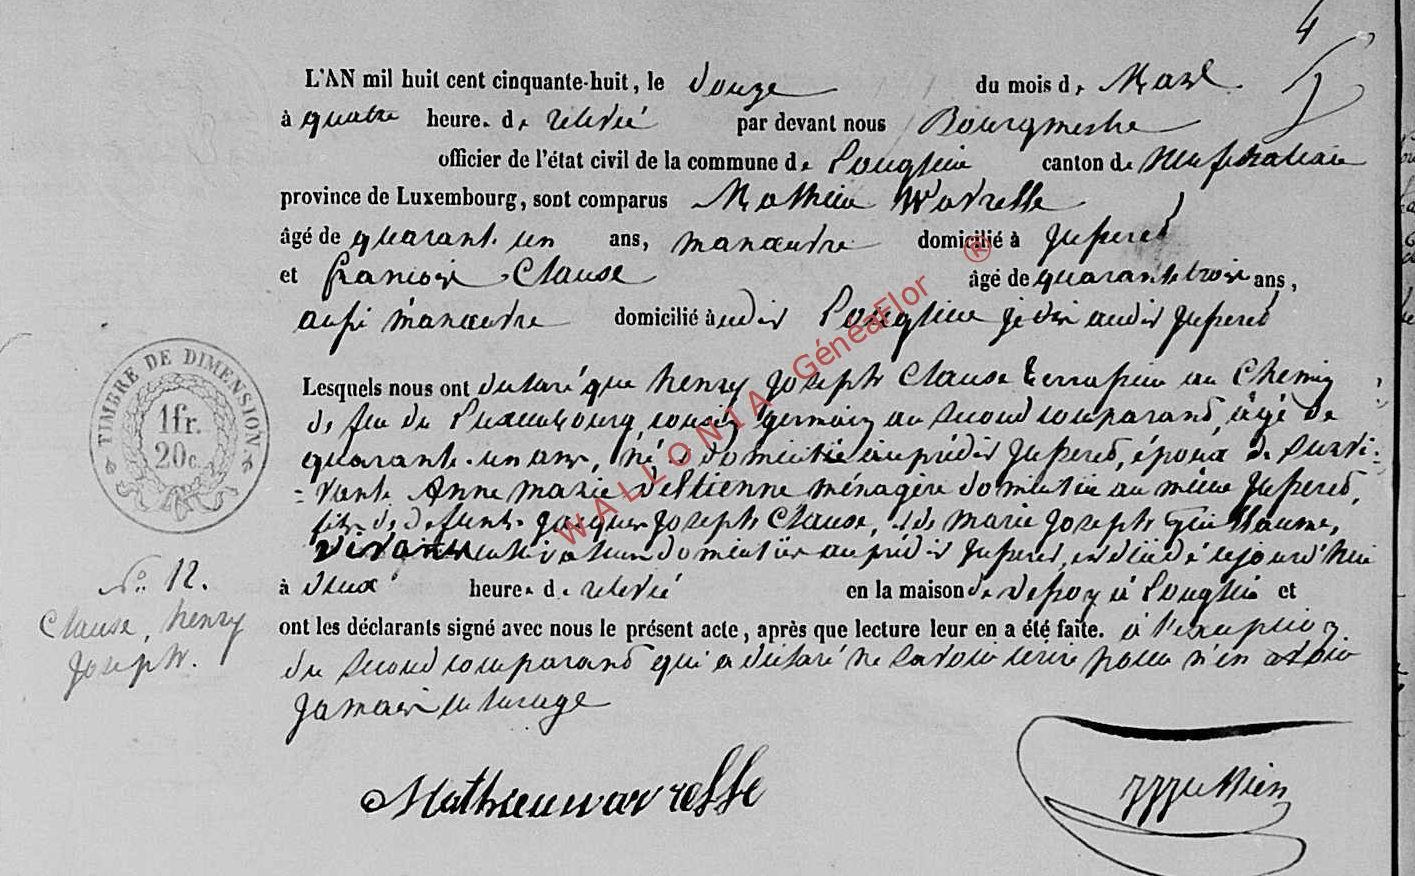 4
L'AN mil huit cent cinquante-huit, le douze du mois de Mars
à quatre heures de relevée par devant nous Bourgmestre
officier de l'état civil de la commune de Longlier canton de Neufchateau
province de Luxembourg, sont comparus Mathieu Wavreille
âgé de quarante un ans, manœuvre domicilié à
et françois Clause âgé de quarante trois ans,
aussi manœuvre domicilié à Longlier
Lesquels nous ont déclaré que henry Joseph Clause terrassier au Chemin
de fer du Luxembourg, cousin germain au second comparant, âgé de
quarante-un ans, né, domicilié au prédit, époux de survi-
vante Anne Marie ménagère domiciliée au même
fils de defunts Jacques Joseph Clause, et de Marie Joseph Guillaume,
vivants domiciliés au prédit, est décédé aujourd'hui
à deux heures de relevée en la maison de à Longlier et
ont les déclarants signé avec nous le présent acte, après que lecture leur en a été faite. à l'exception
du second comparant qui a déclaré ne savoir écrire pour n'en avoir
Jamais eu l'usage
TIMBRE DE DIMENSION
1fr.
20c.
No. 12.
Clause, henry
Joseph.
WALLONIA GénéaFlor ®